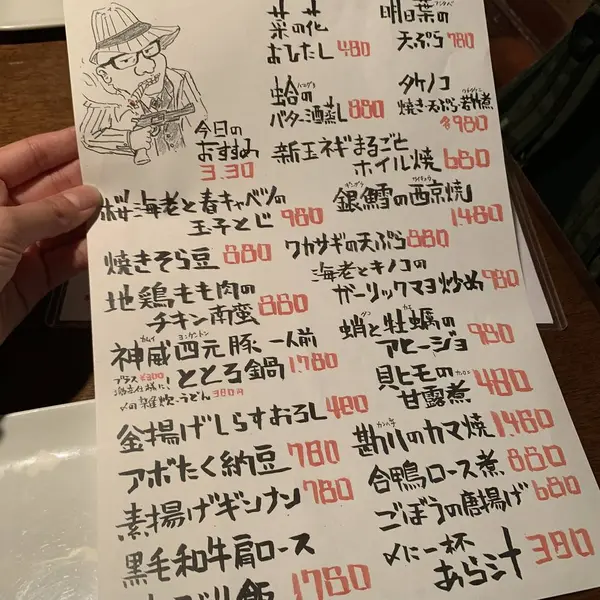 菜の花
おひたし 480
明日葉の
天ぷら 780
蛤の
バター酒蒸し 880
タケノコ
焼き・天ぷら・若竹煮
各980
今日の
おすすめ
3.30
新玉ネギまるごと
ホイル焼 680
桜海老と春キャベツの
玉子とじ 980
銀鱈の西京焼
1,480
焼きそら豆 880
ワカサギの天ぷら 880
地鶏もも肉の
チキン南蛮 880
海老とキノコの
ガーリックマヨ炒め 980
神威四元豚 一人前
とろろ鍋 1,780
プラス¥300
〆の雑炊・うどん 380円
蛸と牡蠣の
アヒージョ 980
貝ヒモの
甘露煮 480
釜揚げしらすおろし 480
勘八のカマ焼 1,480
アボたく納豆 780
合鴨ロース煮 880
素揚げギンナン 780
ごぼうの唐揚げ 680
黒毛和牛肩ロース
1780
〆に一杯
あら汁 380